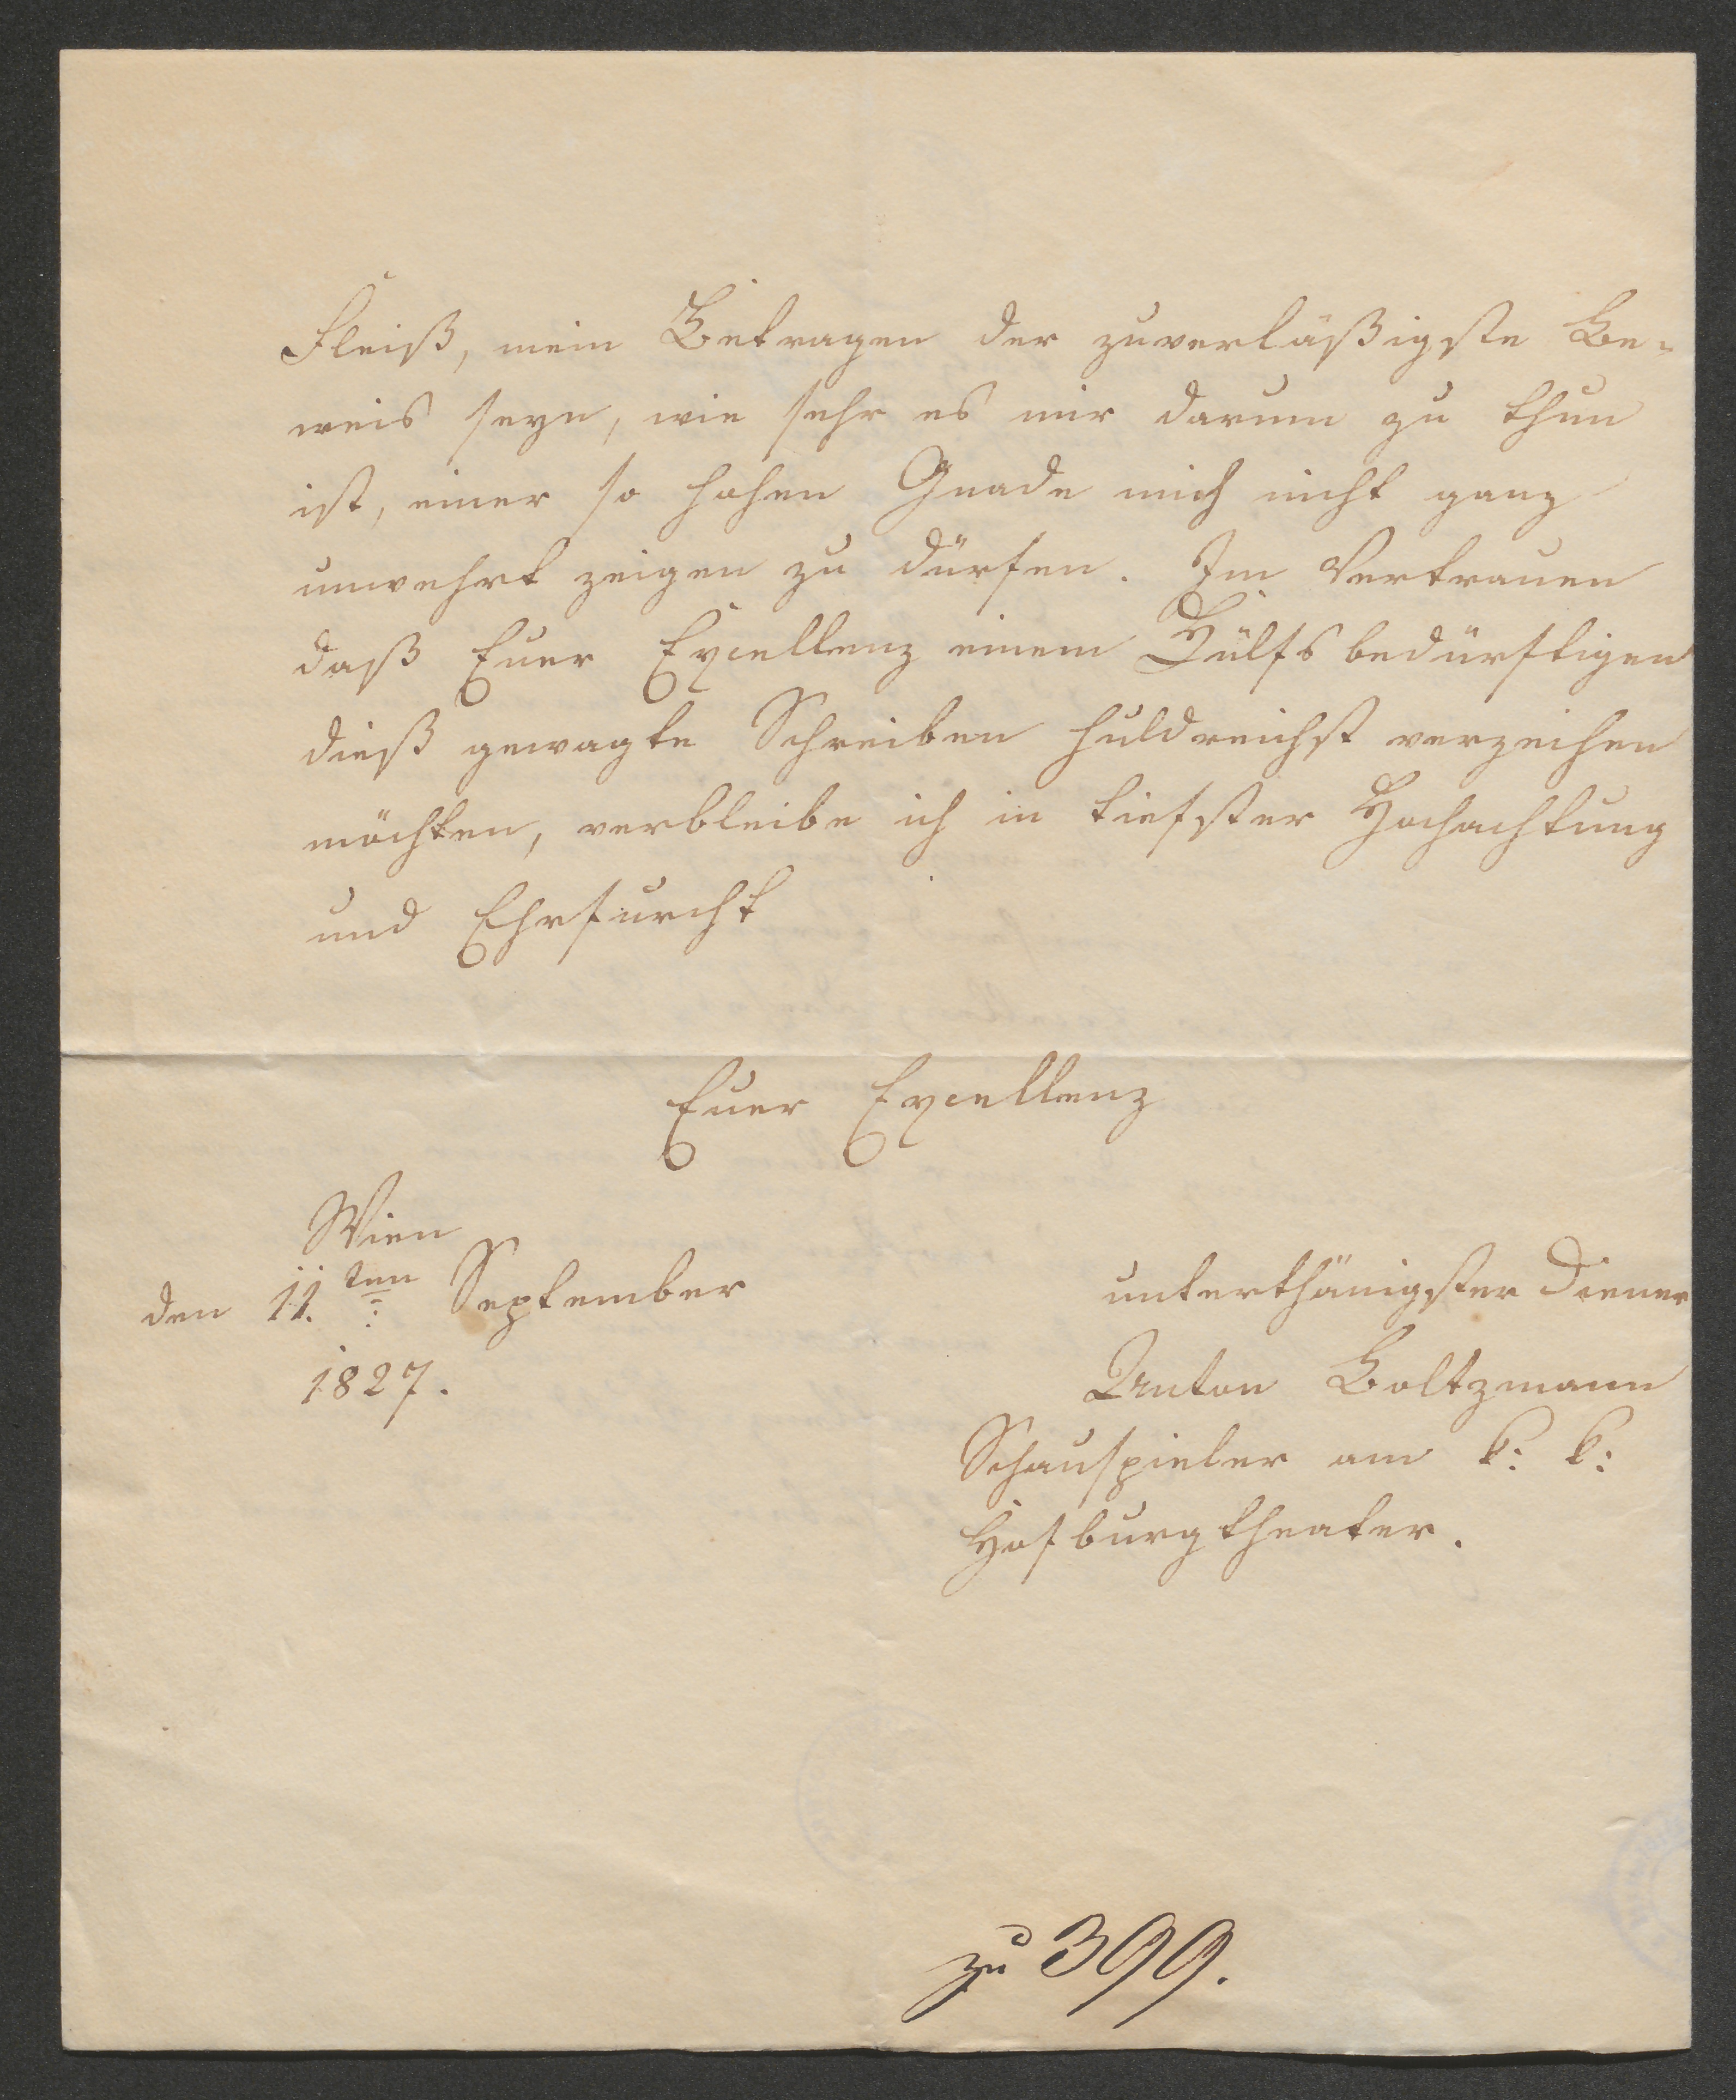 Fleiß, mein Betragen der zuverläßigste Be=
weis seyn, wie sehr es mir darum zu thun
ist, einer so hohen Gnade mich nicht ganz
unwehrt zeigen zu dürfen. Im Vertrauen
daß Euer Excellenz einem Hülfsbedürftigen
dieß gewagte Schreiben huldreichst verzeihen
möchten, verbleibe ich in tiefster Hochachtung
und Ehrfurcht
Euer Excellenz
Wien
den 11.ten September
1827.
unterthänigster Diener
Anton Boltzmann
Schauspieler am k: k:
Hofburgtheater.
zu 399.